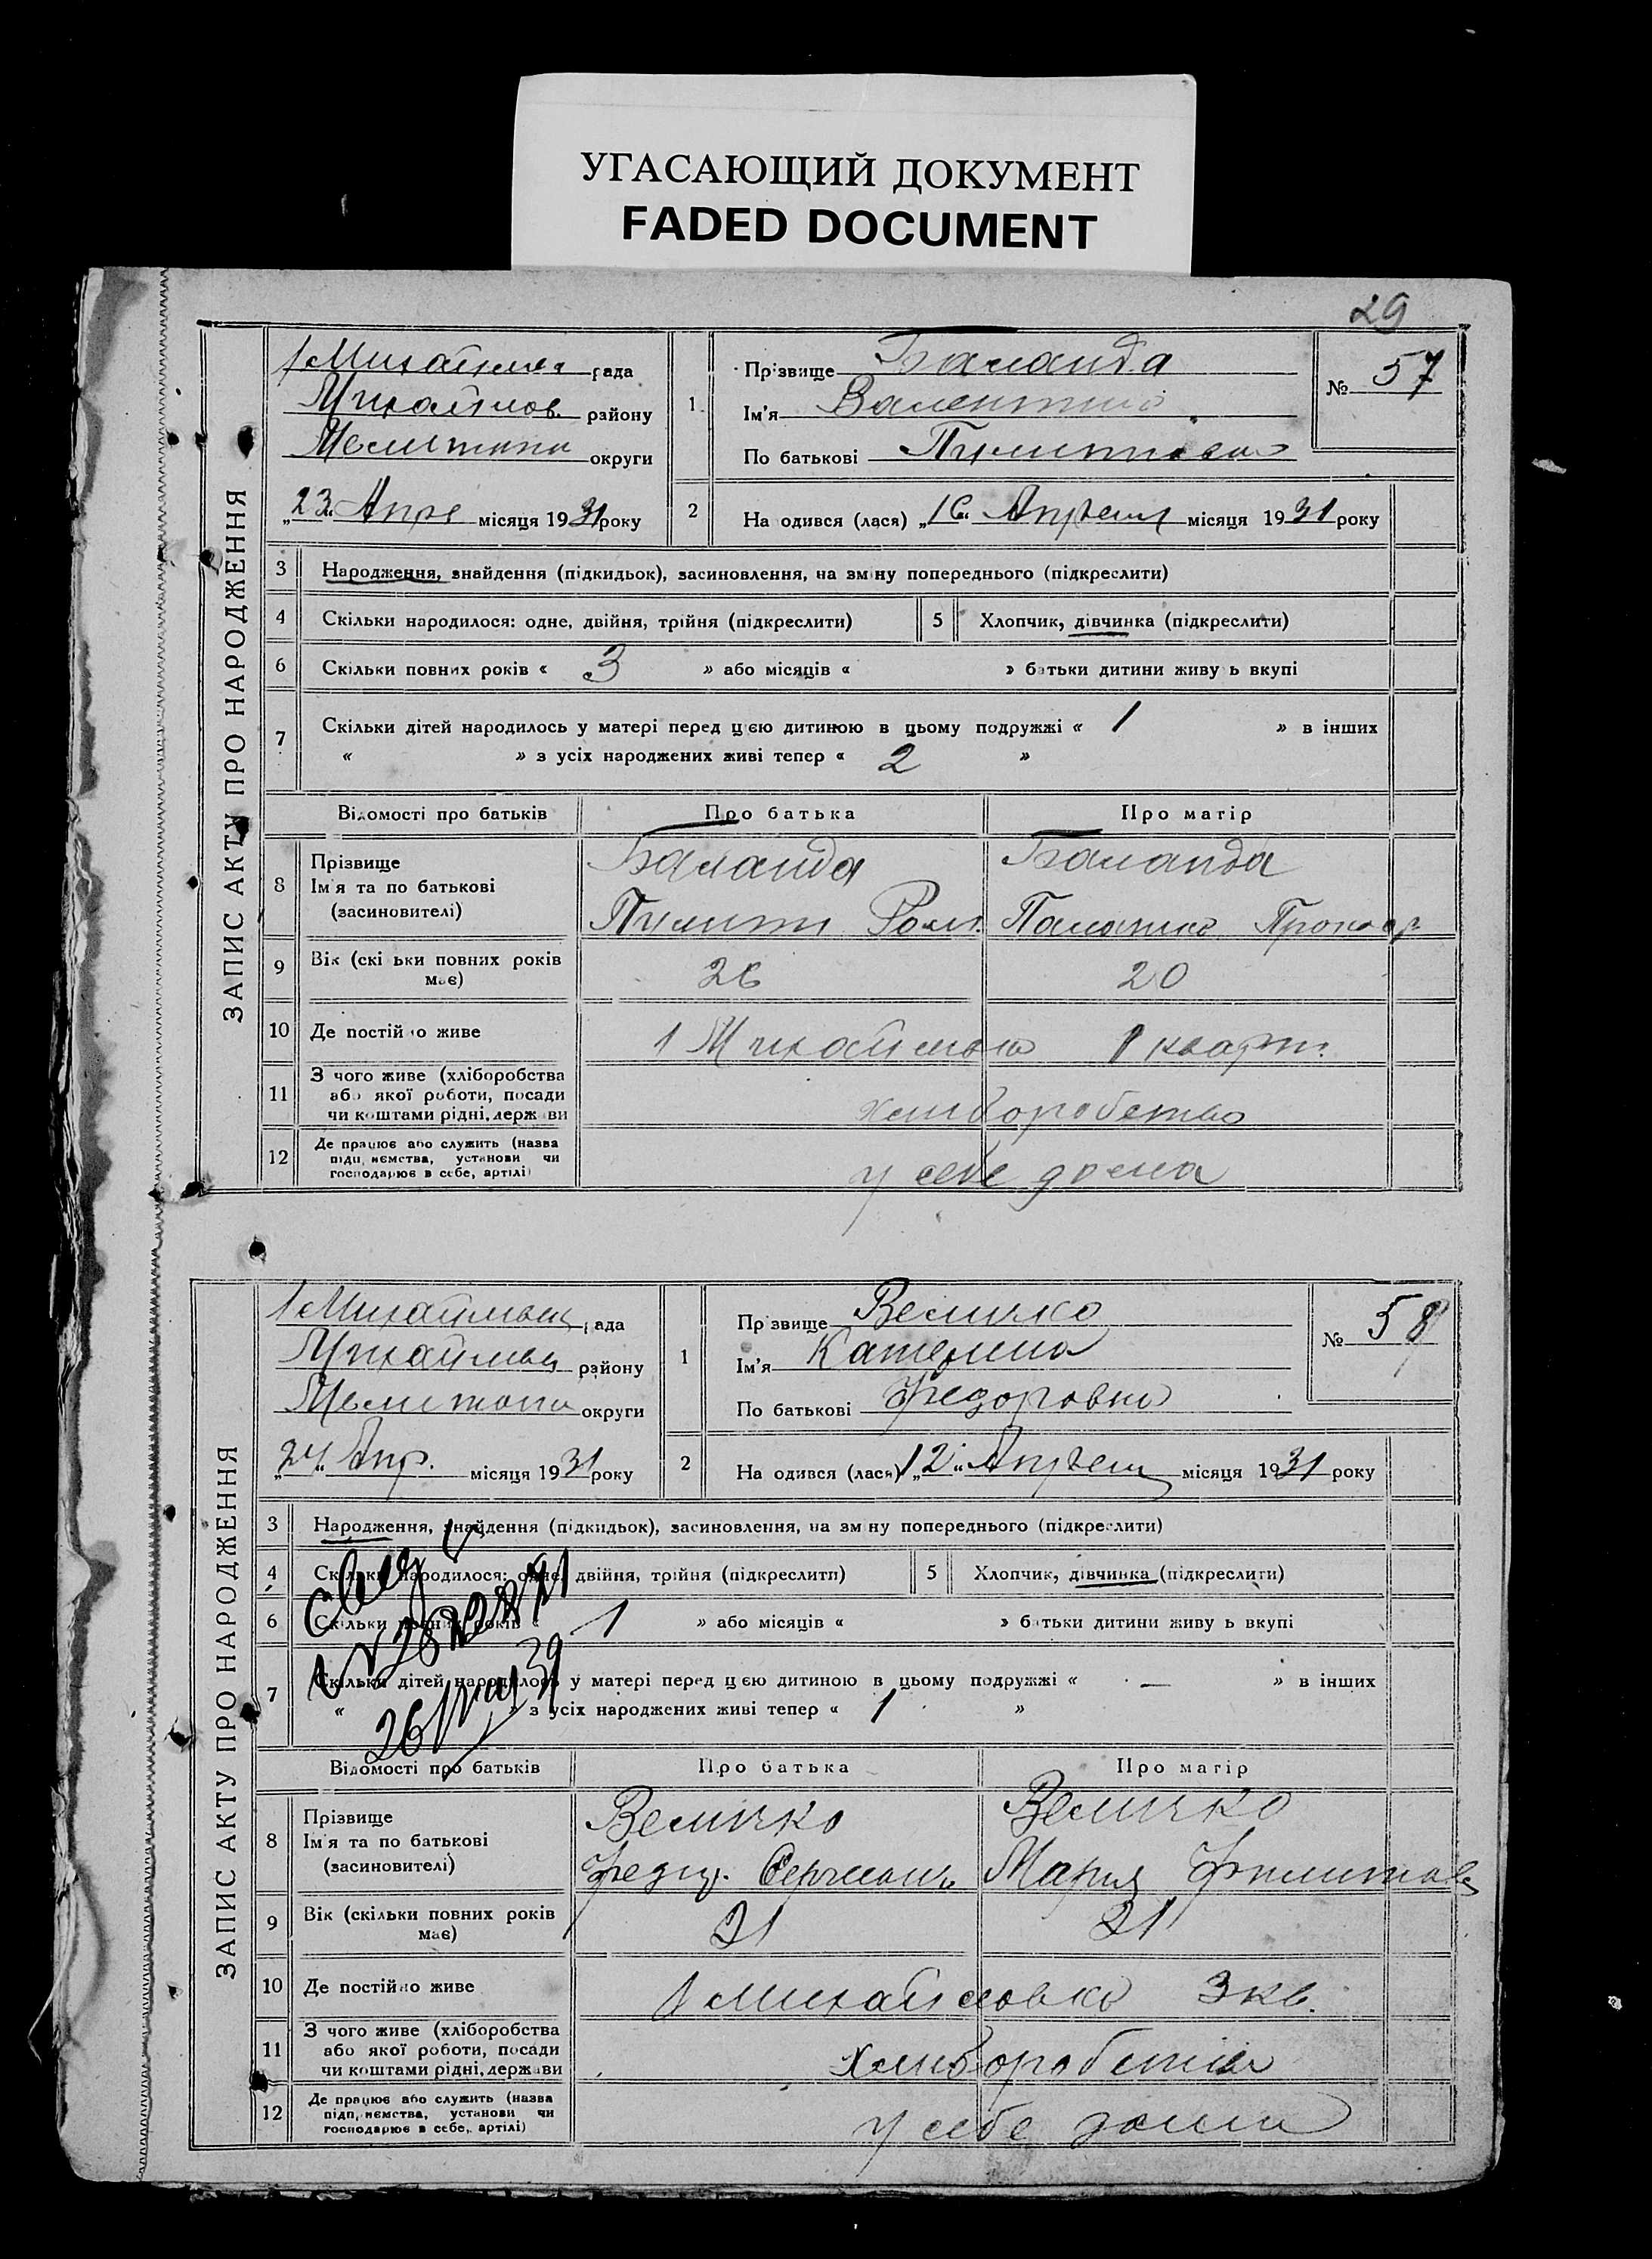 УГАСАЮЩИЙ ДОКУМЕНТ
FADED DOCUMENT
29
ЗАПИС АКТУ ПРО НАРОДЖЕННЯ
рада
району
округи
„23“ Апре місяця 1931 року
1
Прізвище Баланда
Ім'я Валентина
По батькові
№ 57
2
На одився (лася) „16“ Апреля місяця 1931 року
3 Народження, знайдення (підкидьок), засиновлення, на зміну попереднього (підкреслити)
4 Скільки народилося: одне, двійня, трійня (підкреслити)
5 Хлопчик, дівчинка (підкреслити)
6 Скільки повних років « 3 » або місяців « » батьки дитини живу ь вкупі
7 Скільки дітей народилось у матері перед цією дитиною в цьому подружжі « 1 » в інших
« » з усіх народжених живі тепер « 2 »
Відомості про батьків Про батька Про матір
8 Прізвище
Ім'я та по батькові
(засновителі)
Баланда Баланда
9 Вік (скі ьки повних років має) 26 20
10 Де постійно живе 1 Михайловка 1 кварт.
11 З чого живе (хліборобства
або якої роботи, посади
чи коштами рідні, держави
хлиборобство
12 Де працює або служить (назва
підприємства, установи чи
господарює в себе, артілі)
у себе дома
ЗАПИС АКТУ ПРО НАРОДЖЕННЯ
рада
району
округи
„24“ Апр. місяця 1931 року
1
Прізвище Величко
Ім'я Катерина
По батькові Федоровна
№ 58
2
На одився (лася) „12“ Апреля місяця 1931 року
3 Народження, знайдення (підкидьок), засиновлення, на зміну попереднього (підкреслити)
4 Скільки народилося: одне, двійня, трійня (підкреслити)
5 Хлопчик, дівчинка (підкреслити)
6 Скільки повних років « 1 » або місяців « » батьки дитини живу ь вкупі
7 Скільки дітей народилось у матері перед цією дитиною в цьому подружжі « — » в інших
« » з усіх народжених живі тепер « 1 »
Відомості про батьків Про батька Про матір
8 Прізвище
Ім'я та по батькові
(засиновителі)
Величко Величко
Мария
9 Вік (скільки повних років має) 21 21
10 Де постійно живе 1 Михайловка 3 кв.
11 З чого живе (хліборобства
або якої роботи, посади
чи коштами рідні, держави
12 Де працює або служить (назва
підприємства, установи чи
господарює в себе, артілі)
у себе доми